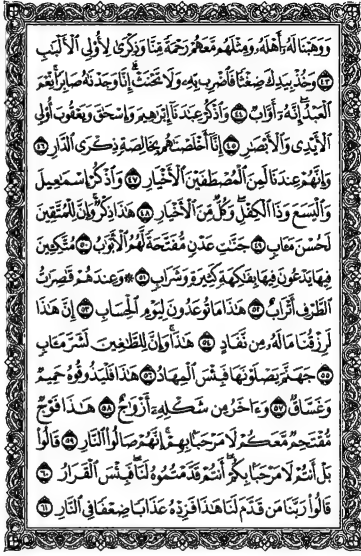 وَوَهَبْنَا لَهُۥٓ أَهْلَهُۥ وَمِثْلَهُم مَّعَهُمْ رَحْمَةً مِّنَّا وَذِكْرَىٰ لِأُو۟لِى ٱلْأَلْبَـٰبِ
٤٣ وَخُذْ بِيَدِكَ ضِغْثًا فَٱضْرِب بِّهِۦ وَلَا تَحْنَثْ ۗ إِنَّا وَجَدْنَـٰهُ صَابِرًا ۚ نِّعْمَ
ٱلْعَبْدُ ۖ إِنَّهُۥٓ أَوَّابٌ ٤٤ وَٱذْكُرْ عِبَـٰدَنَآ إِبْرَٰهِيمَ وَإِسْحَـٰقَ وَيَعْقُوبَ أُو۟لِى
ٱلْأَيْدِى وَٱلْأَبْصَـٰرِ ٤٥ إِنَّآ أَخْلَصْنَـٰهُم بِخَالِصَةٍ ذِكْرَى ٱلدَّارِ ٤٦
وَإِنَّهُمْ عِندَنَا لَمِنَ ٱلْمُصْطَفَيْنَ ٱلْأَخْيَارِ ٤٧ وَٱذْكُرْ إِسْمَـٰعِيلَ
وَٱلْيَسَعَ وَذَا ٱلْكِفْلِ ۖ وَكُلٌّ مِّنَ ٱلْأَخْيَارِ ٤٨ هَـٰذَا ذِكْرٌ ۚ وَإِنَّ لِلْمُتَّقِينَ
لَحُسْنَ مَـَٔابٍ ٤٩ جَنَّـٰتِ عَدْنٍ مُّفَتَّحَةً لَّهُمُ ٱلْأَبْوَٰبُ ٥٠ مُتَّكِـِٔينَ
فِيهَا يَدْعُونَ فِيهَا بِفَـٰكِهَةٍ كَثِيرَةٍ وَشَرَابٍ ٥١ ۞ وَعِندَهُمْ قَـٰصِرَٰتُ
ٱلطَّرْفِ أَتْرَابٌ ٥٢ هَـٰذَا مَا تُوعَدُونَ لِيَوْمِ ٱلْحِسَابِ ٥٣ إِنَّ هَـٰذَا
لَرِزْقُنَا مَا لَهُۥ مِن نَّفَادٍ ٥٤ هَـٰذَا ۚ وَإِنَّ لِلطَّـٰغِينَ لَشَرَّ مَـَٔابٍ
٥٥ جَهَنَّمَ يَصْلَوْنَهَا فَبِئْسَ ٱلْمِهَادُ ٥٦ هَـٰذَا فَلْيَذُوقُوهُ حَمِيمٌ
وَغَسَّاقٌ ٥٧ وَءَاخَرُ مِن شَكْلِهِۦٓ أَزْوَٰجٌ ٥٨ هَـٰذَا فَوْجٌ
مُّقْتَحِمٌ مَّعَكُمْ ۖ لَا مَرْحَبًۢا بِهِمْ ۚ إِنَّهُمْ صَالُوا۟ ٱلنَّارِ ٥٩ قَالُوا۟
بَلْ أَنتُمْ لَا مَرْحَبًۢا بِكُمْ ۖ أَنتُمْ قَدَّمْتُمُوهُ لَنَا ۖ فَبِئْسَ ٱلْقَرَارُ ٦٠
قَالُوا۟ رَبَّنَا مَن قَدَّمَ لَنَا هَـٰذَا فَزِدْهُ عَذَابًا ضِعْفًا فِى ٱلنَّارِ ٦١